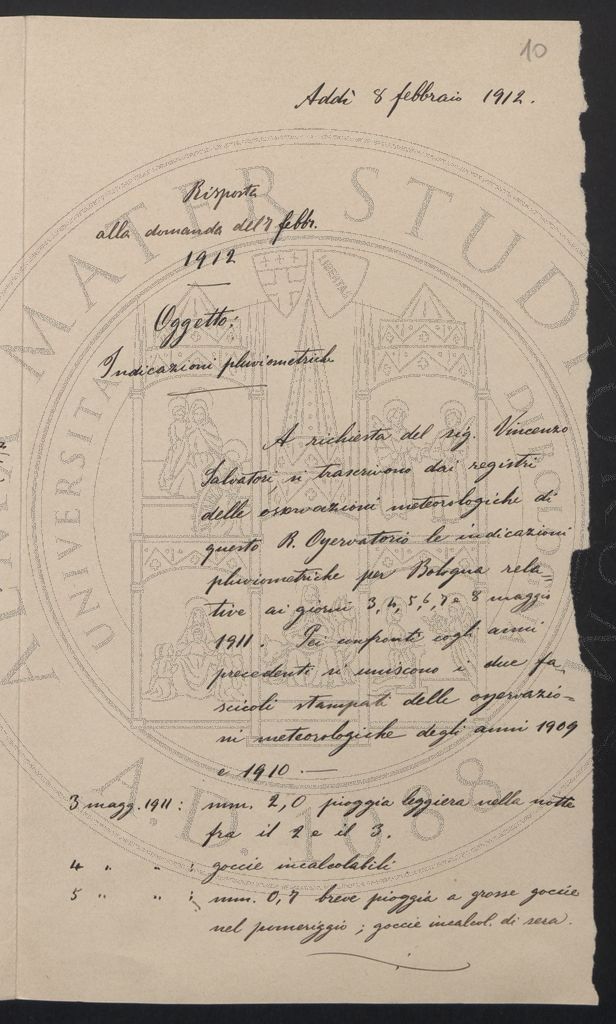 10
Addì 8 febbraio 1912.
Risposta
alla domanda del 7 febbr.
1912
Oggetto:
Indicazioni pluviometriche
A richiesta del sig. Vincenzo
Salvatori, si trascrivono dai registri
delle osservazioni meteorologiche di
questo R. Osservatorio le indicazioni
pluviometriche per Bologna rela=
tive ai giorni 3, 4, 5, 6, 7 e 8 maggio
1911. Pei confronti cogli anni
precedenti si uniscono i due fa,
scicoli stampati delle osservazio=
ni meteorologiche degli anni 1909
e 1910. —
3 magg. 1911: mm. 2,0 pioggia leggiera nella notte
fra il 2 e il 3.
4 " " : goccie incalcolabili
5 " " : mm. 0,7 breve pioggia a grosse goccie
nel pomeriggio; goccie incalcol. di sera.
ALMA MATER STUDIORUM
UNIVERSITA
LIBERTAS
A.D. 1088